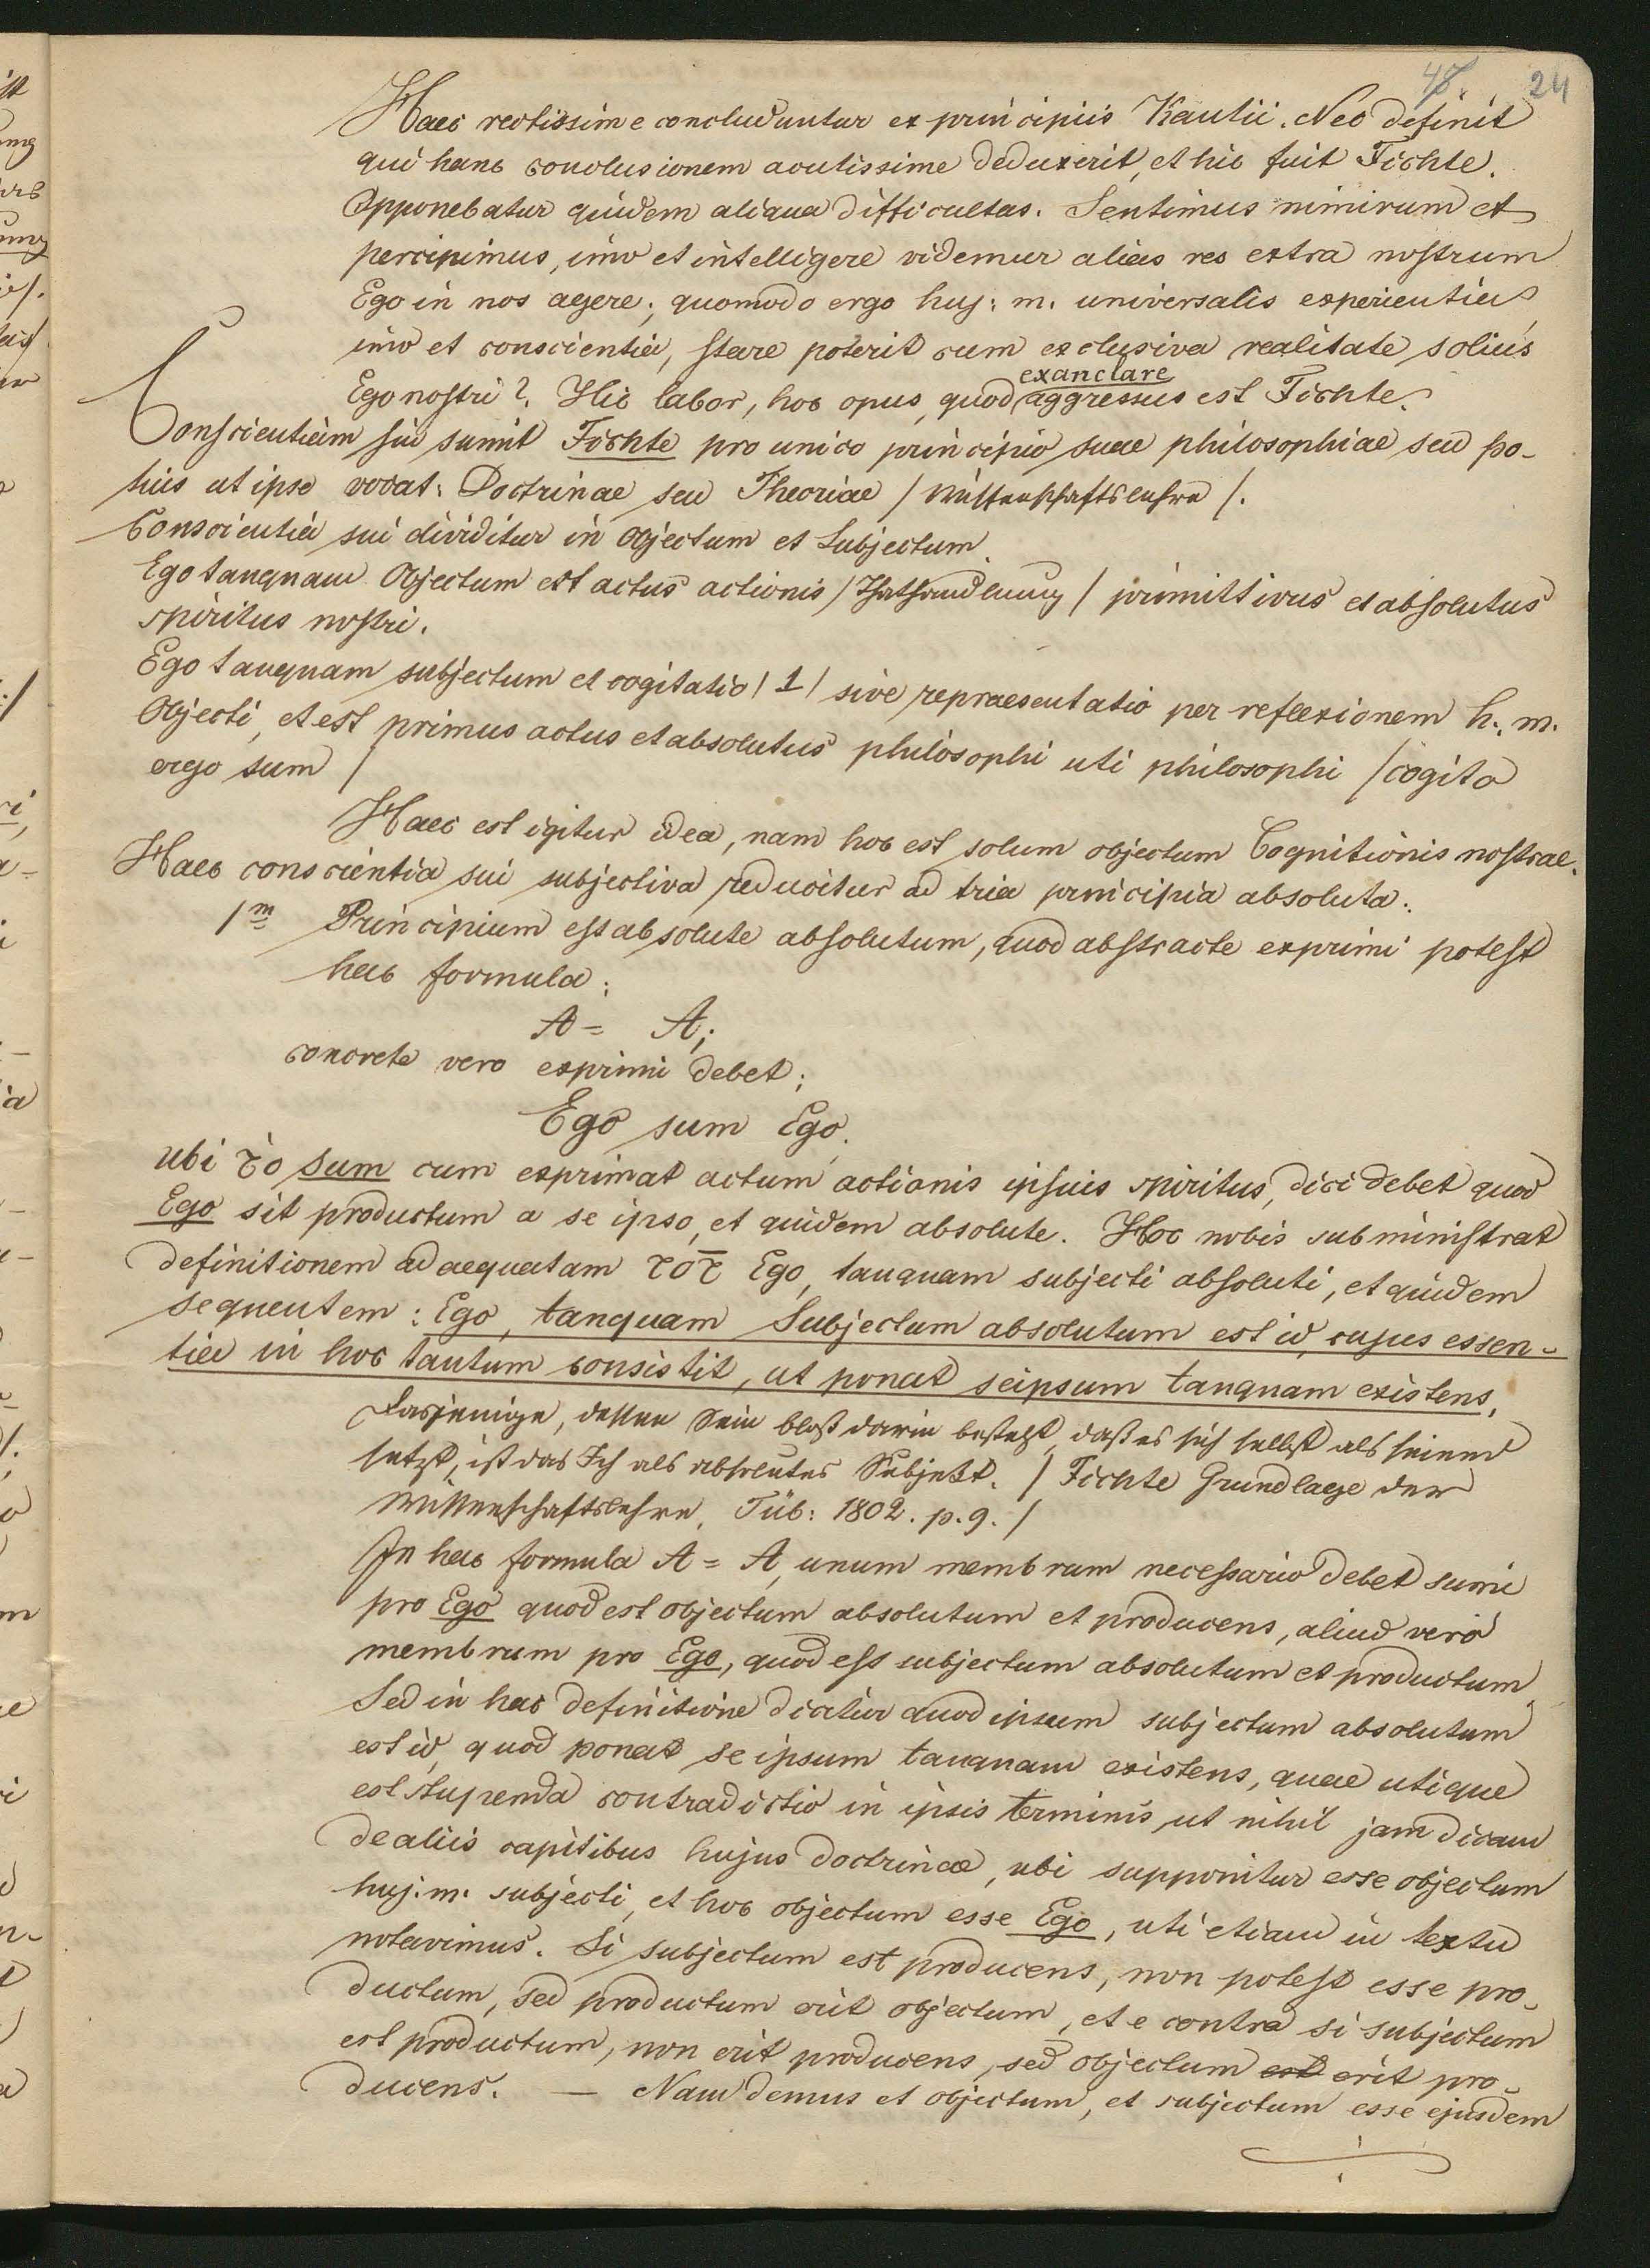 48. 24
Haec rectissime concluduntur ex principiis Kantii. Nec definit
qui hanc conclusionem acutissime deduxerit, et hic fuit Fichte.
Opponebatur quidem aliqua difficultas. Sentimus nimirum et
percipimus, imo et intelligere videmur alias res extra nostrum
Ego in nos agere; quomodo ergo huj: m. universalis experientia,
imo et conscientia, stare poterit cum exclusiva realitate solius
Ego nostri? Hic labor, hoc opus, quod exanclare aggressus est Fichte.
Conscientiam sui sumit Fichte pro unico principio suae philosophiae seu po-
tius ut ipse vocat: Doctrinae seu Theoriae / Wissenschaftslehre /.
Conscientia sui dividitur in Objectum et Subjectum.
Ego tanquam Objectum est actus actionis / Thathandlung / primittivus et absolutus
spiritus nostri.
Ego tanquam subjectum et cogitatio / 1 / sive repraesentatio per reflexionem h. m.
Objecti, et est primus actus et absolutus philosophi uti philosophi / cogito
ergo sum /
Haec est igitur idea, nam hoc est solum objectum Cognitionis nostrae.
Haec conscientia sui subjectiva reducitur ad tria principia absoluta:
1m Principium est absolute absolutum, quod abstracte exprimi potest
hac formula:
A = A;
concrete vero exprimi debet:
Ego sum Ego.
ubi τὸ sum cum exprimat actum actionis ipsius spiritus, dici debet quod
Ego sit productum a se ipso, et quidem absolute. Hoc nobis subministrat
definitionem adaequatam τοῦ Ego, tanquam subjecti absoluti, et quidem
sequentem: Ego, tanquam Subjectum absolutum est id, cujus essen-
tia in hoc tantum consistit, ut ponat seipsum tanquam existens.
Dasjenige, dessen Sein bloß darin besteht, daß es sich selbst als seiend
setzt, ist das Ich als absolutes Subjekt. / Fichte Grundlage der
Wissenschaftslehre. Tüb: 1802. p. 9. /
In hac formula A = A, unum membrum necessario debet sumi
pro Ego quod est objectum absolutum et producens, aliud vero
membrum pro Ego, quod est subjectum absolutum et productum.
Sed in hac definitione dicitur quod ipsum subjectum absolutum
est id, quod ponat se ipsum tanquam existens, quae utique
est stupenda contradictio in ipsis terminis, ut nihil jam dicam
de aliis capitibus hujus doctrinae, ubi supponitur esse objectum
huj. m. subjecti, et hoc objectum esse Ego, uti etiam in textu
notavimus. Si subjectum est producens, non potest esse pro-
ductum, sed productum erit objectum, et e contra si subjectum
est productum, non erit producens, sed objectum est erit pro-
ducens. — Nam demus et objectum, et subjectum esse ejusdem